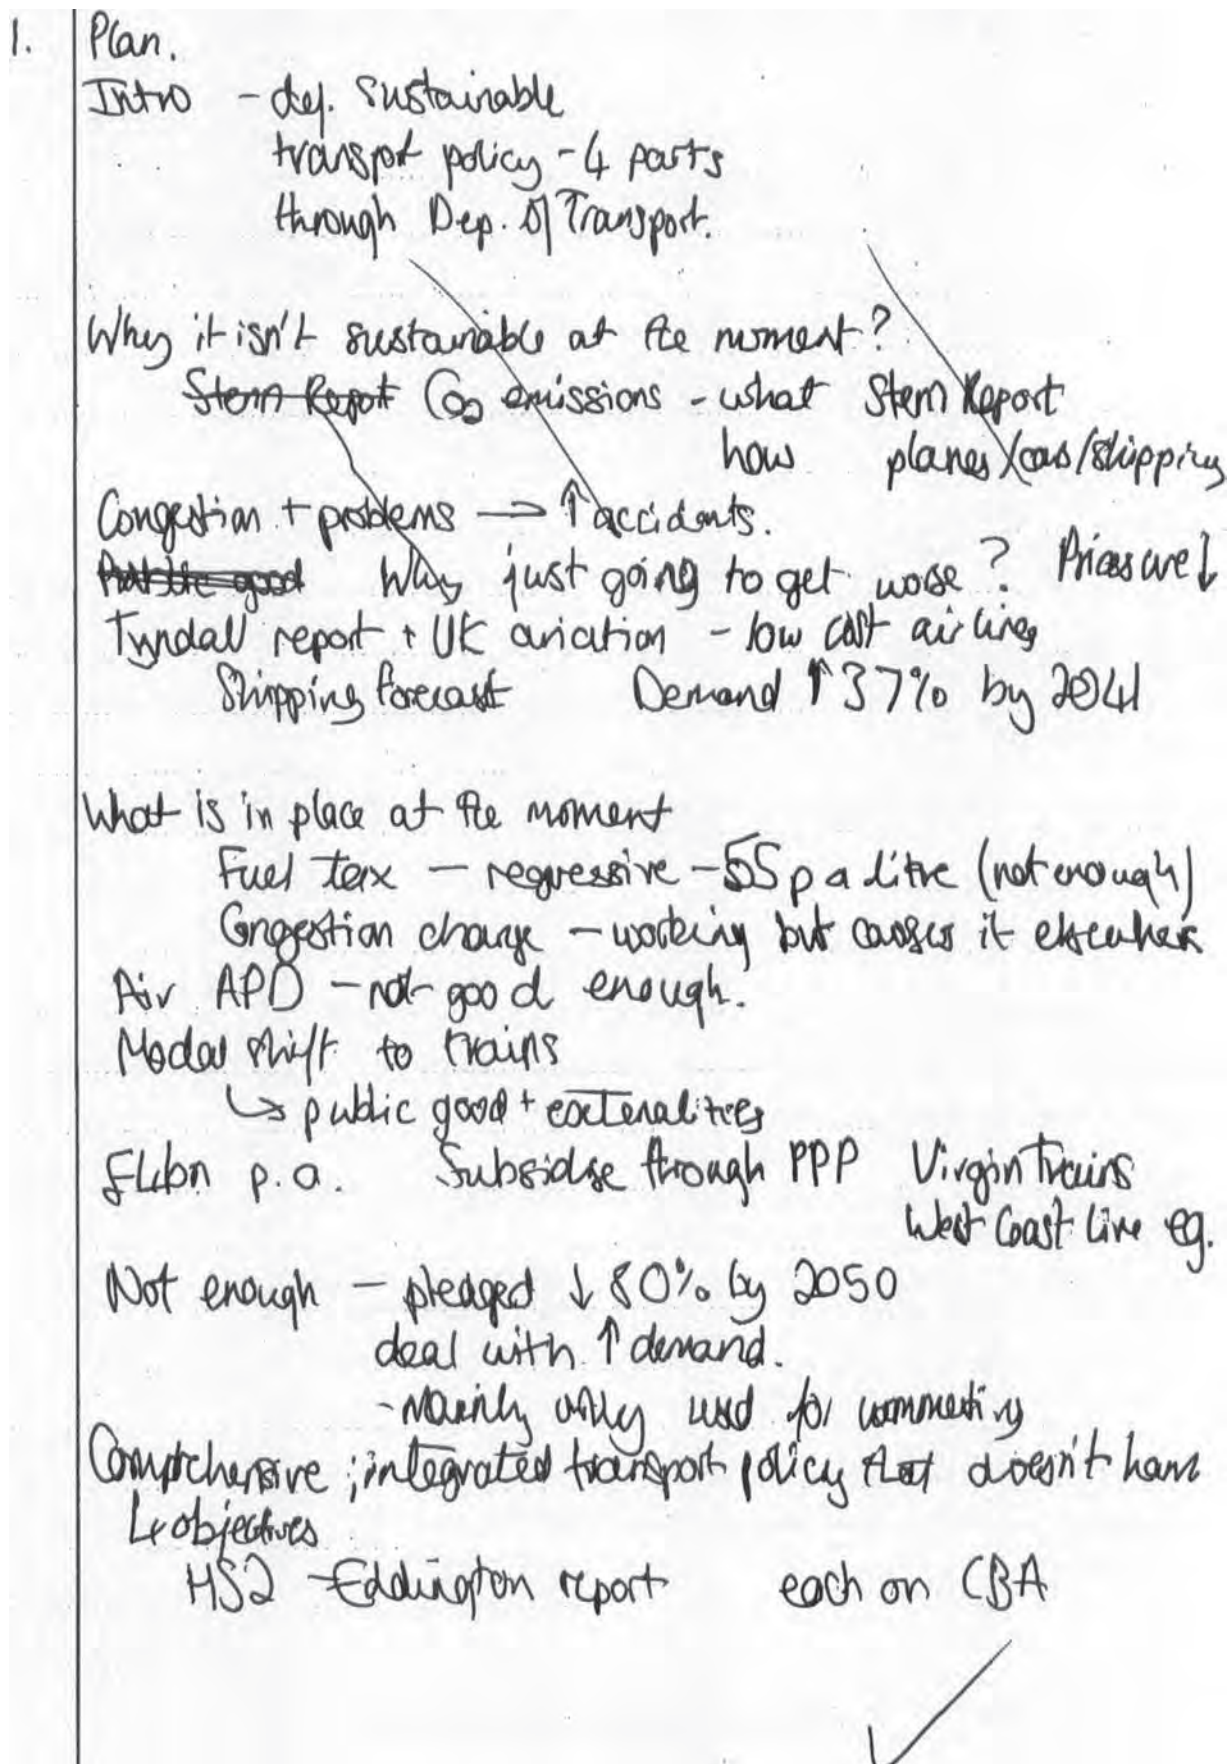 1. Plan.
Intro - def. sustainable
transport policy - 4 parts
through Dep. of Transport.
Why it isn't sustainable at the moment?
Stern Report CO2 emissions - what Stern Report
how planes/cars/shipping
Congestion + problems → ↑ accidents.
Why just going to get worse? Prices are ↓
Tyndall report + UK aviation - low cost airlines
Shipping forecast Demand ↑ 37% by 2041
What is in place at the moment
Fuel tax - regressive - 55p a litre (not enough)
Congestion charge - working but causes it elsewhere
Air APD - not good enough.
Modal shift to trains
↳ public good + externalities
p.a. Subsidise through PPP Virgin Trains
West Coast Line eg.
Not enough - pledged ↓ 80% by 2050
deal with ↑ demand.
- Mainly only used for commuting
Comprehensive, integrated transport policy that doesn't harm
4 objectives
HS2 - Eddington report each on CBA